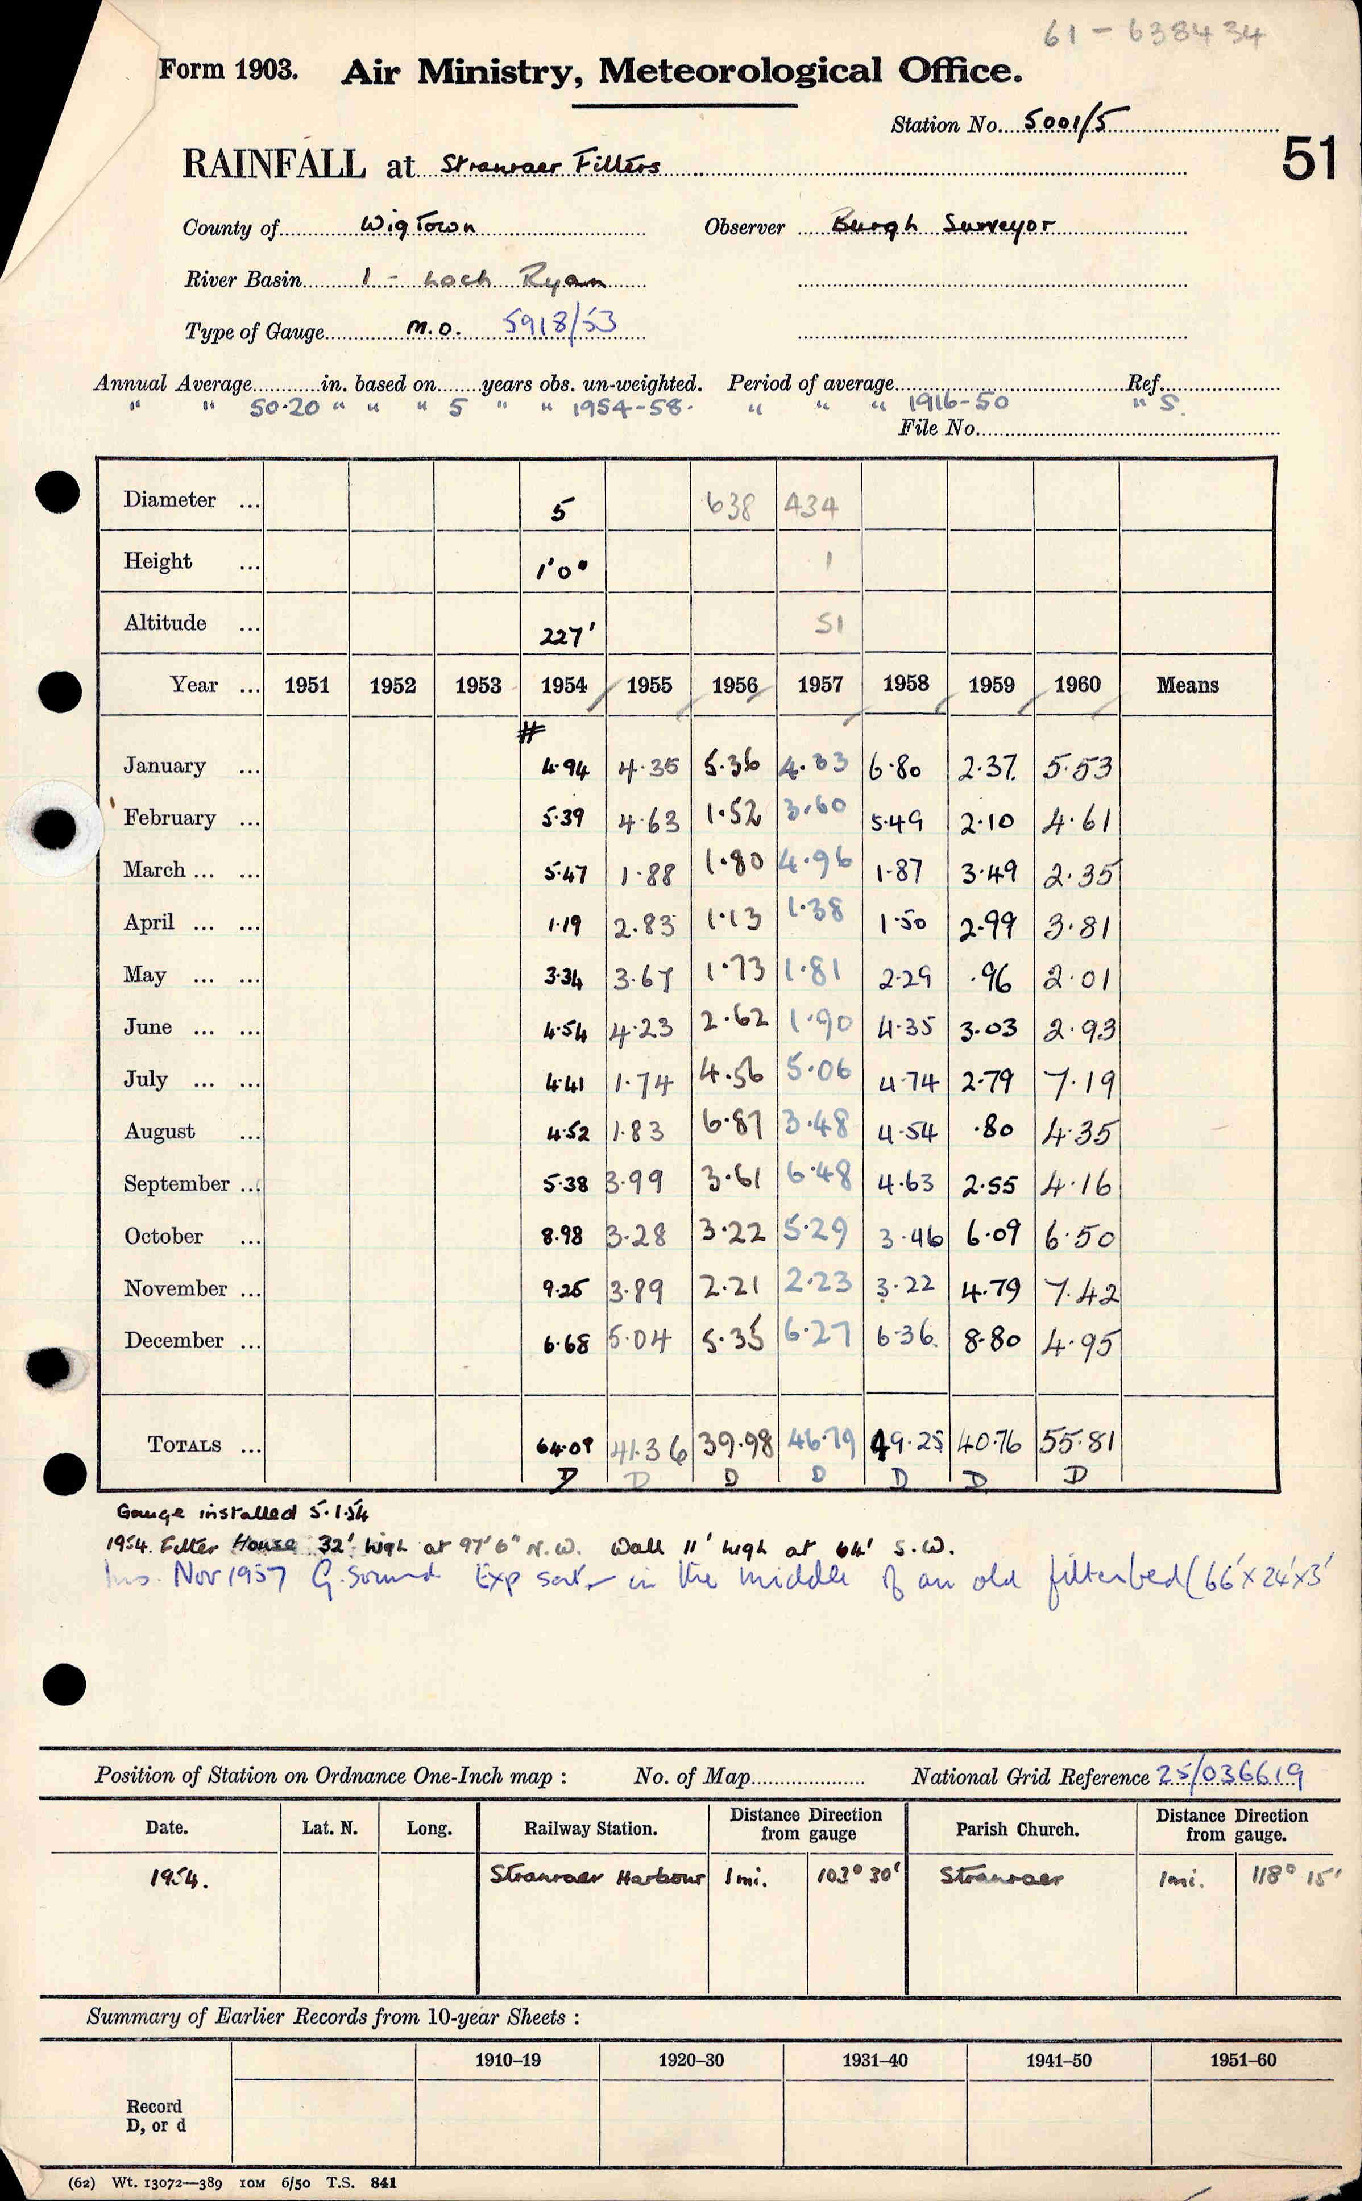 61 - 638434
Form 1903. Air Ministry, Meteorological Office.
Station No. 5001/5
51
RAINFALL at Stranraer Filters
County of Wigtown Observer Burgh Surveyor
River Basin 1 - Loch Ryan
Type of Gauge M.O. 5918/53
Annual Average in. based on years obs. un-weighted. Period of average Ref.
" " 50.20 " " " 5 " " 1954-58. " " " 1916-50 " S.
File No.
Diameter ... 5 638 434
Height ... 1'0" 1
Altitude ... 227' 51
Year ... 1951 1952 1953 1954 1955 1956 1957 1958 1959 1960 Means
#
January ... 4.94 4.35 5.36 4.33 6.80 2.37 5.53
February ... 5.39 4.63 1.52 3.60 5.49 2.10 4.61
March ... ... 5.47 1.88 1.80 4.96 1.87 3.49 2.35
April ... ... 1.19 2.83 1.13 1.38 1.50 2.99 3.81
May ... ... 3.34 3.67 1.73 1.81 2.29 .96 2.01
June ... ... 4.54 4.23 2.62 1.90 4.35 3.03 2.93
July ... ... 4.41 1.74 4.56 5.06 4.74 2.79 7.19
August ... 4.52 1.83 6.87 3.48 4.54 .80 4.35
September ... 5.38 3.99 3.61 6.48 4.63 2.55 4.16
October ... 8.98 3.28 3.22 5.29 3.46 6.09 6.50
November ... 9.25 3.89 2.21 2.23 3.22 4.79 7.42
December ... 6.68 5.04 5.35 6.27 6.36 8.80 4.95
TOTALS ... 64.09 41.36 39.98 46.79 49.25 40.76 55.81
D D D D D D D
Gauge installed 5.1.54
1954. Filter House 32' high at 97'6" N.W. Wall 11' high at 64' S.W.
Ins. Nov 1957 G. Sound Exp sat. in the middle of an old filterbed (66'x24'x3'
Position of Station on Ordnance One-Inch map : No. of Map National Grid Reference 25/036619
Date. Lat. N. Long. Railway Station. Distance Direction from gauge Parish Church. Distance Direction from gauge.
1954. Stranraer Harbour 1mi. 103° 30' Stranraer 1mi. 118° 15'
Summary of Earlier Records from 10-year Sheets :
1910–19 1920–30 1931–40 1941–50 1951–60
Record
D, or d
(62) Wt. 13072—389 10M 6/50 T.S. 841